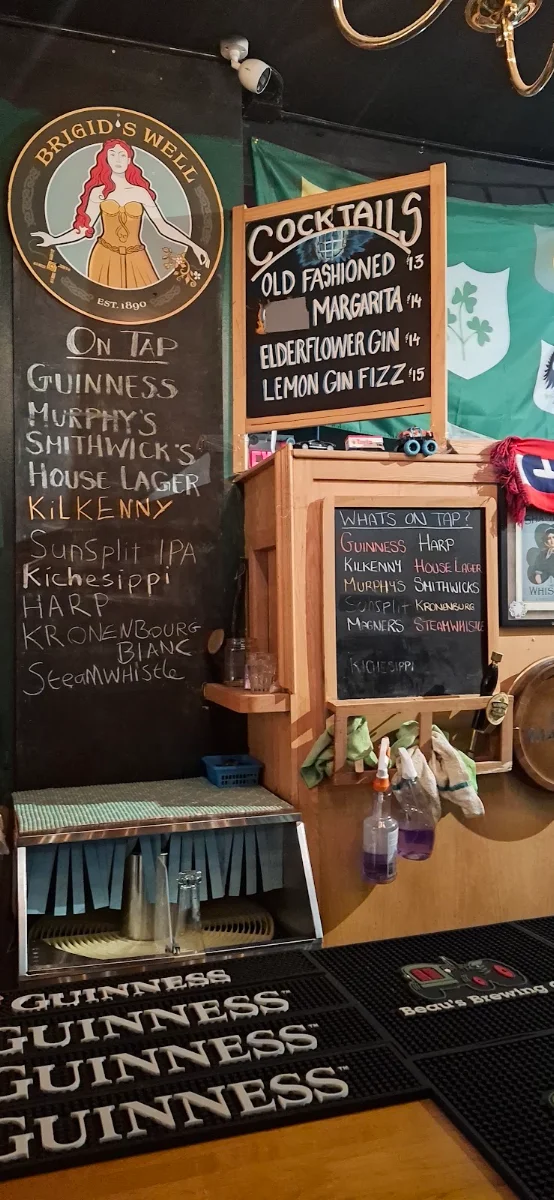 BRIGID'S WELL
EST. 1890
ON TAP
GUINNESS
MURPHY'S
SMITHWICK'S
HOUSE LAGER
KiLKENNY
SUNSPLIT IPA
Kichesippi
HARP
KRONENBOURG
BLANC
SteamWhistle
COCKTAILS
OLD FASHIONED $13
MARGARITA $14
ELDERFLOWER GIN $14
LEMON GIN FIZZ $15
WHATS ON TAP?
GUINNESS HARP
KILKENNY HOUSE LAGER
MURPHYS SMITHWICKS
SUNSPLIT KRONENBURG
MAGNERS STEAMWHISTLE
KICHESIPPI
WHIS
GUINNESS
GUINNESS™
GUINNESS™
GUINNESS™
Beau's Brewing